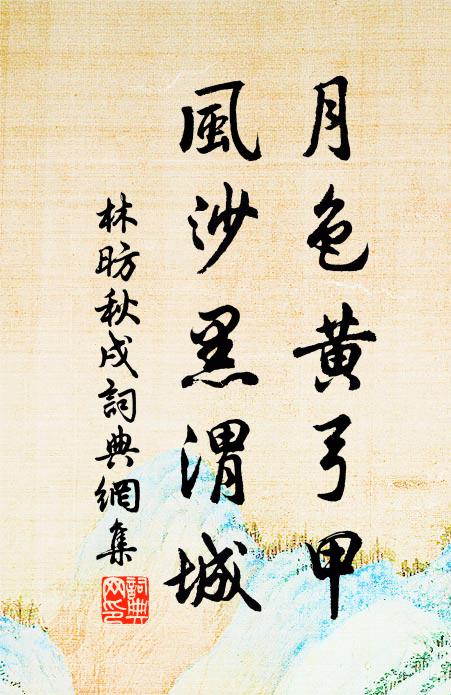 月色黃弓甲
風沙黑渭城
林昉秋戍詞典網集
詞典